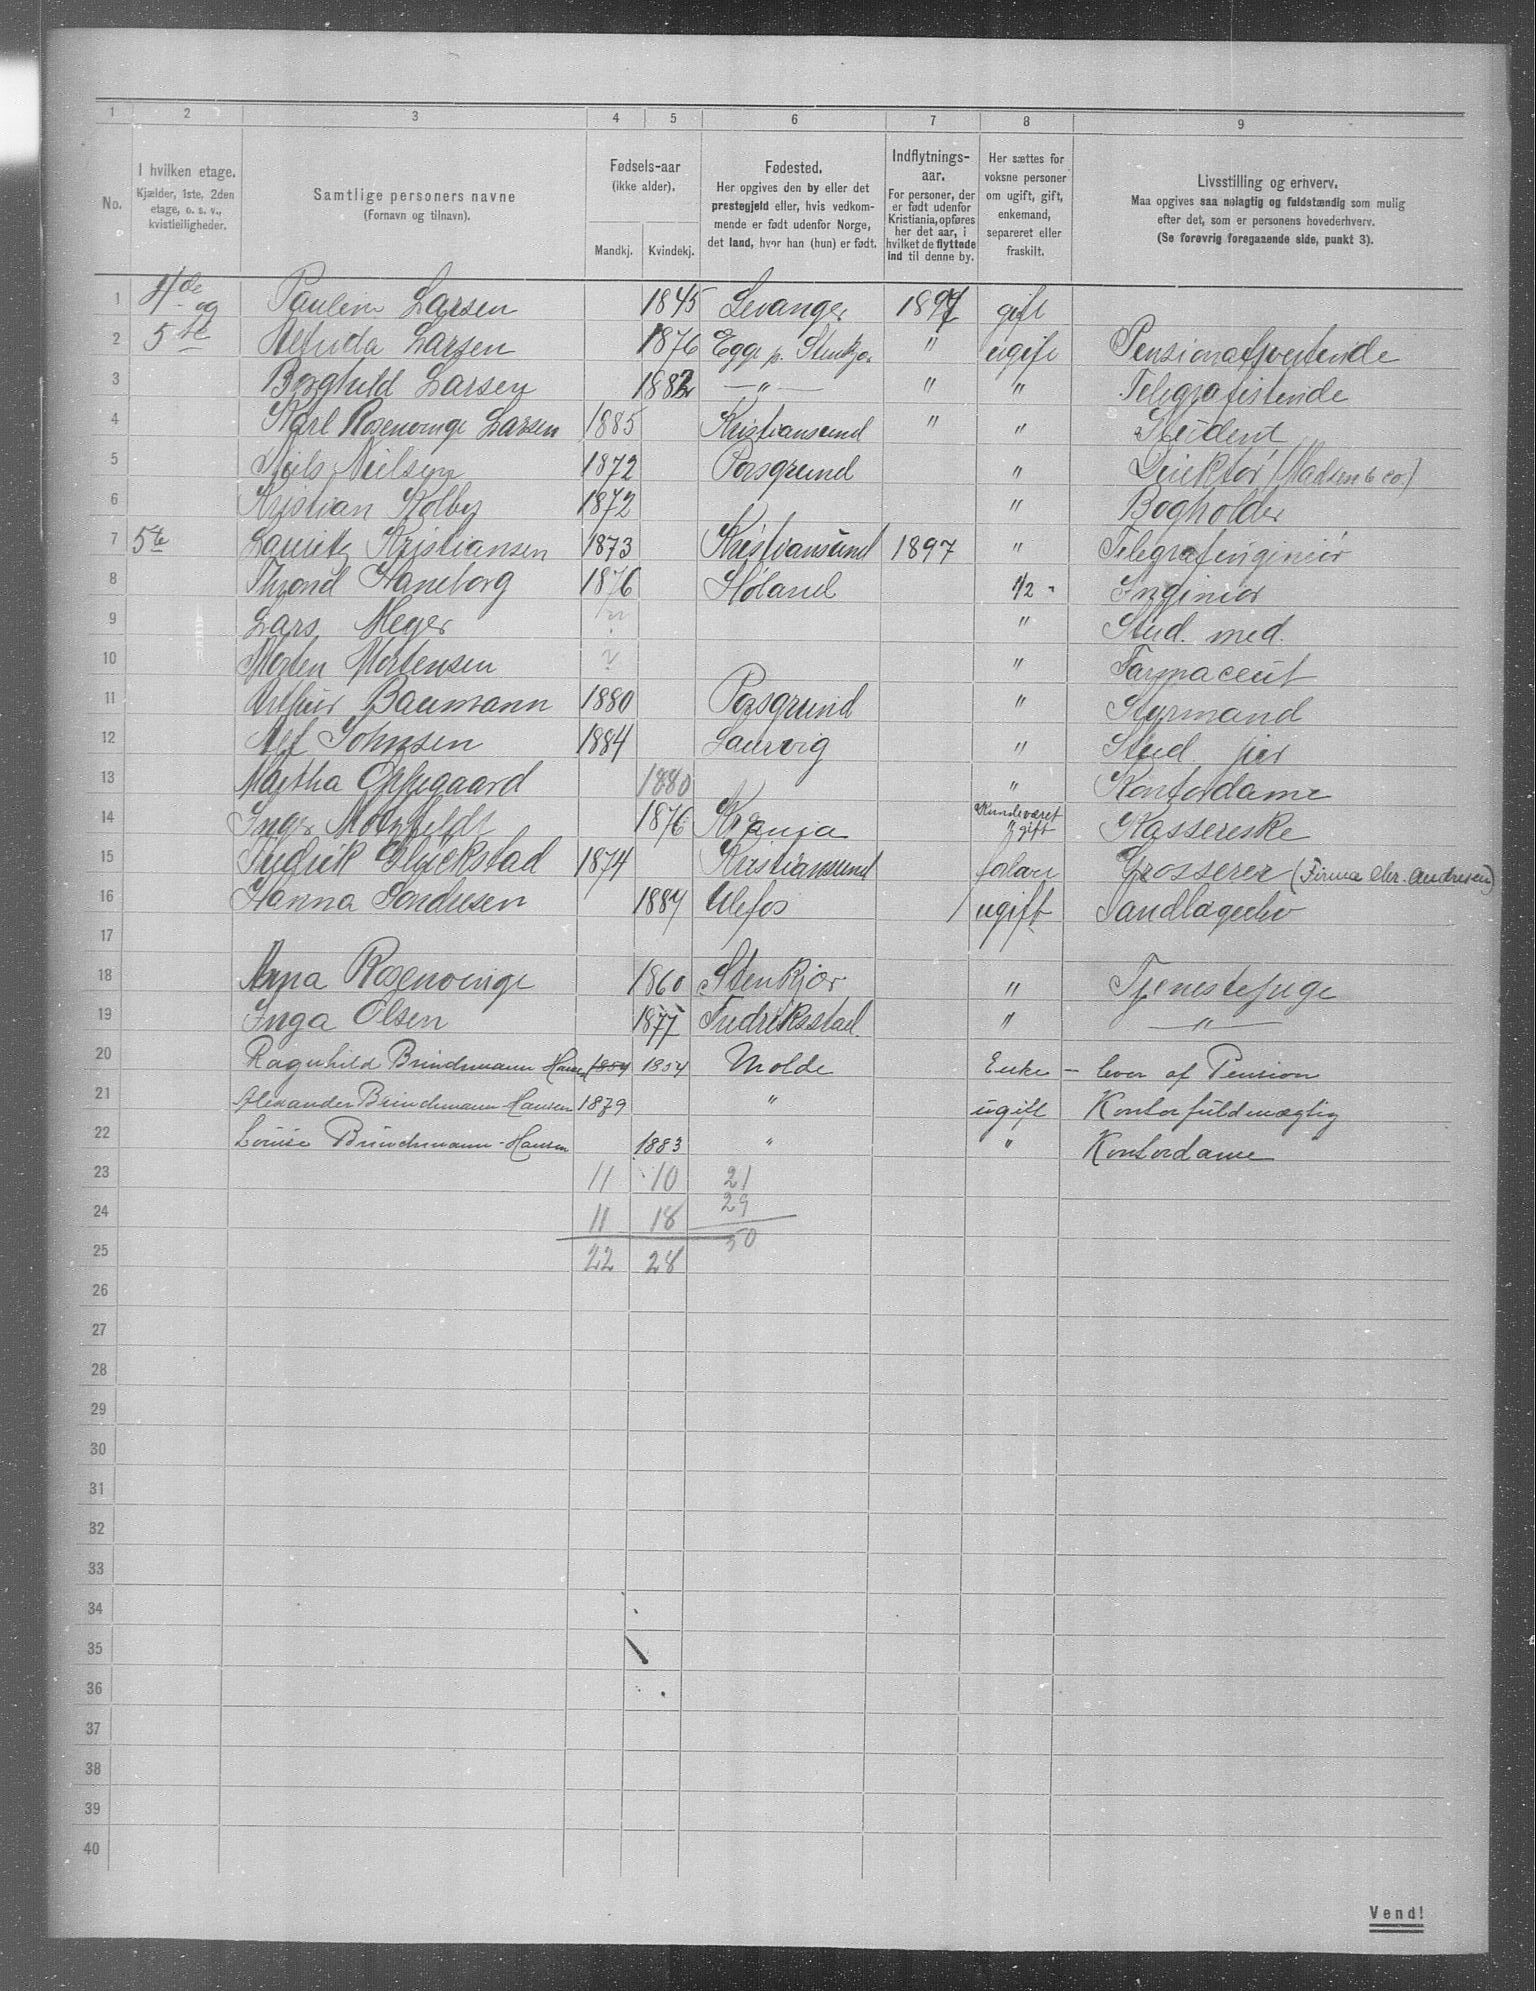 1 2 3 4 5 6 7 8 9
No.
I hvilken etage.
Kjælder, 1ste, 2den
etage, o. s. v.,
kvistleiligheder.
Samtlige personers navne
(Fornavn og tilnavn).
Fødsels-aar
(ikke alder).
Mandkj. Kvindekj.
Fødested.
Her opgives den by eller det
prestegjeld eller, hvis vedkom-
mende er født udenfor Norge,
det land, hvor han (hun) er født.
Indflytnings-
aar.
For personer, der
er født udenfor
Kristiania, opføres
her det aar, i
hvilket de flyttede
ind til denne by.
Her sættes for
voksne personer
om ugift, gift,
enkemand,
separeret eller
fraskilt.
Livsstilling og erhverv.
Maa opgives saa nøiagtig og fuldstændig som mulig
efter det, som er personens hovederhverv.
(Se forøvrig foregaaende side, punkt 3).
1 4de og Pauline Larsen 1845 Levanger 1897 gift
2 5te Alfrida Larsen 1876 Egge p. Stenkjær " ugift Pensionatsvertinde
3 Borghild Larsen 1882 — " — " " Telegrafistinde
4 Karl Rosenvinge Larsen 1885 Kristiansund " " Student
5 Niels Nielsen 1872 Porsgrund " Direktør (Madsen & co.)
6 Kristian Kolby 1872 " Bogholder
7 5te Lauritz Kristiansen 1873 Kristiansund 1897 " Telegrafingeniør
8 Thrond Haneborg 1876 Høland 1/2 " Ingeniør
9 Lars Meyer " Stud. med.
10 Morten Mortensen ? " Farmaceut
11 Arthur Baumann 1880 Porsgrund " Styrmand
12 Alf Johnsen 1884 Laurvig " Stud jur
13 Martha Oppegaard 1880 " Kontordame
14 Inger Motzfeldt 1876 Krania " gift Kassererske
15 Fredrik Glückstad 1874 Kristiansund Grosserer (Firma Chr. Andresen)
16 Hanna Sondresen 1887 Ulefos / ugift Tandlægeelev
17
18 Anna Rosenvinge 1860 Stenkjær " Tjenestepige
19 Inga Olsen 1877 Fredriksstad. " — " —
20 Ragnhild Brinchmann Hansen 1854 1854 Molde Enke – lever af Pension
21 Alexander Brinchmann-Hansen 1879 " ugift Kontorfuldmægtig
22 Louise Brinchmann-Hansen 1883 " " Kontordame
23 11 10 21
24 11 18 29
25 22 28 50
26
27
28
29
30
31
32
33
34
35
36
37
38
39
40
Vend!